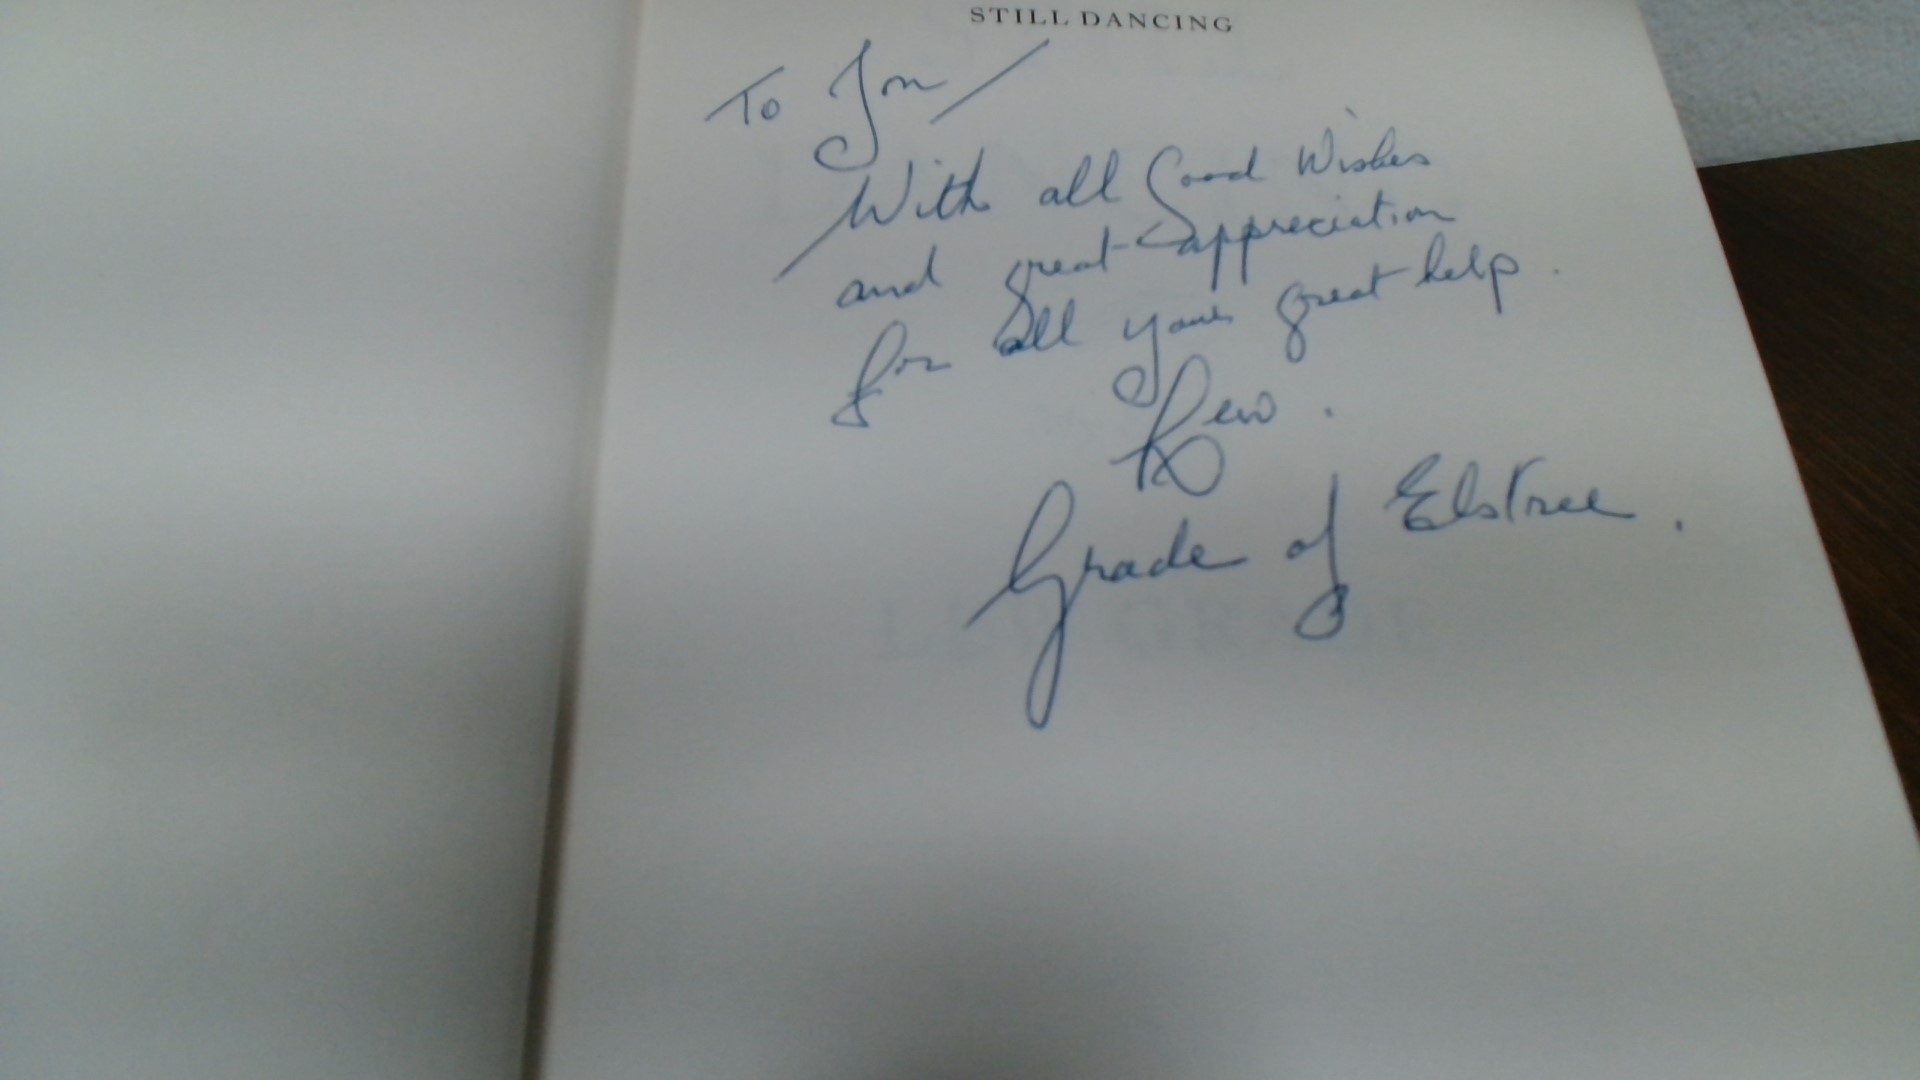 STILL DANCING
To Jon/
With all Good Wishes
and great appreciation
for all your great help.
Lew.
Grade of Elstree.